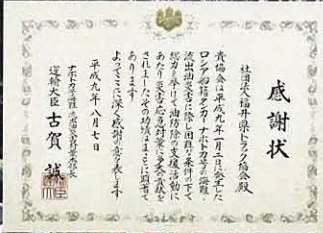 感謝状
社団法人福井県トラック協会殿
貴協会は平成九年一月二日発生した
ロシア船籍タンカーナホトカ号の海難・
流出油災害に際し困難な条件の下で
総力を挙げて油防除の支援活動に
あたり災害応急対策に多大の貢献を
されましたその功績はまことに顕著で
あります
よってここに深く感謝の意を表します
平成九年八月七日
ナホトカ号海難・流出油災害対策本部長
運輸大臣 古賀 誠